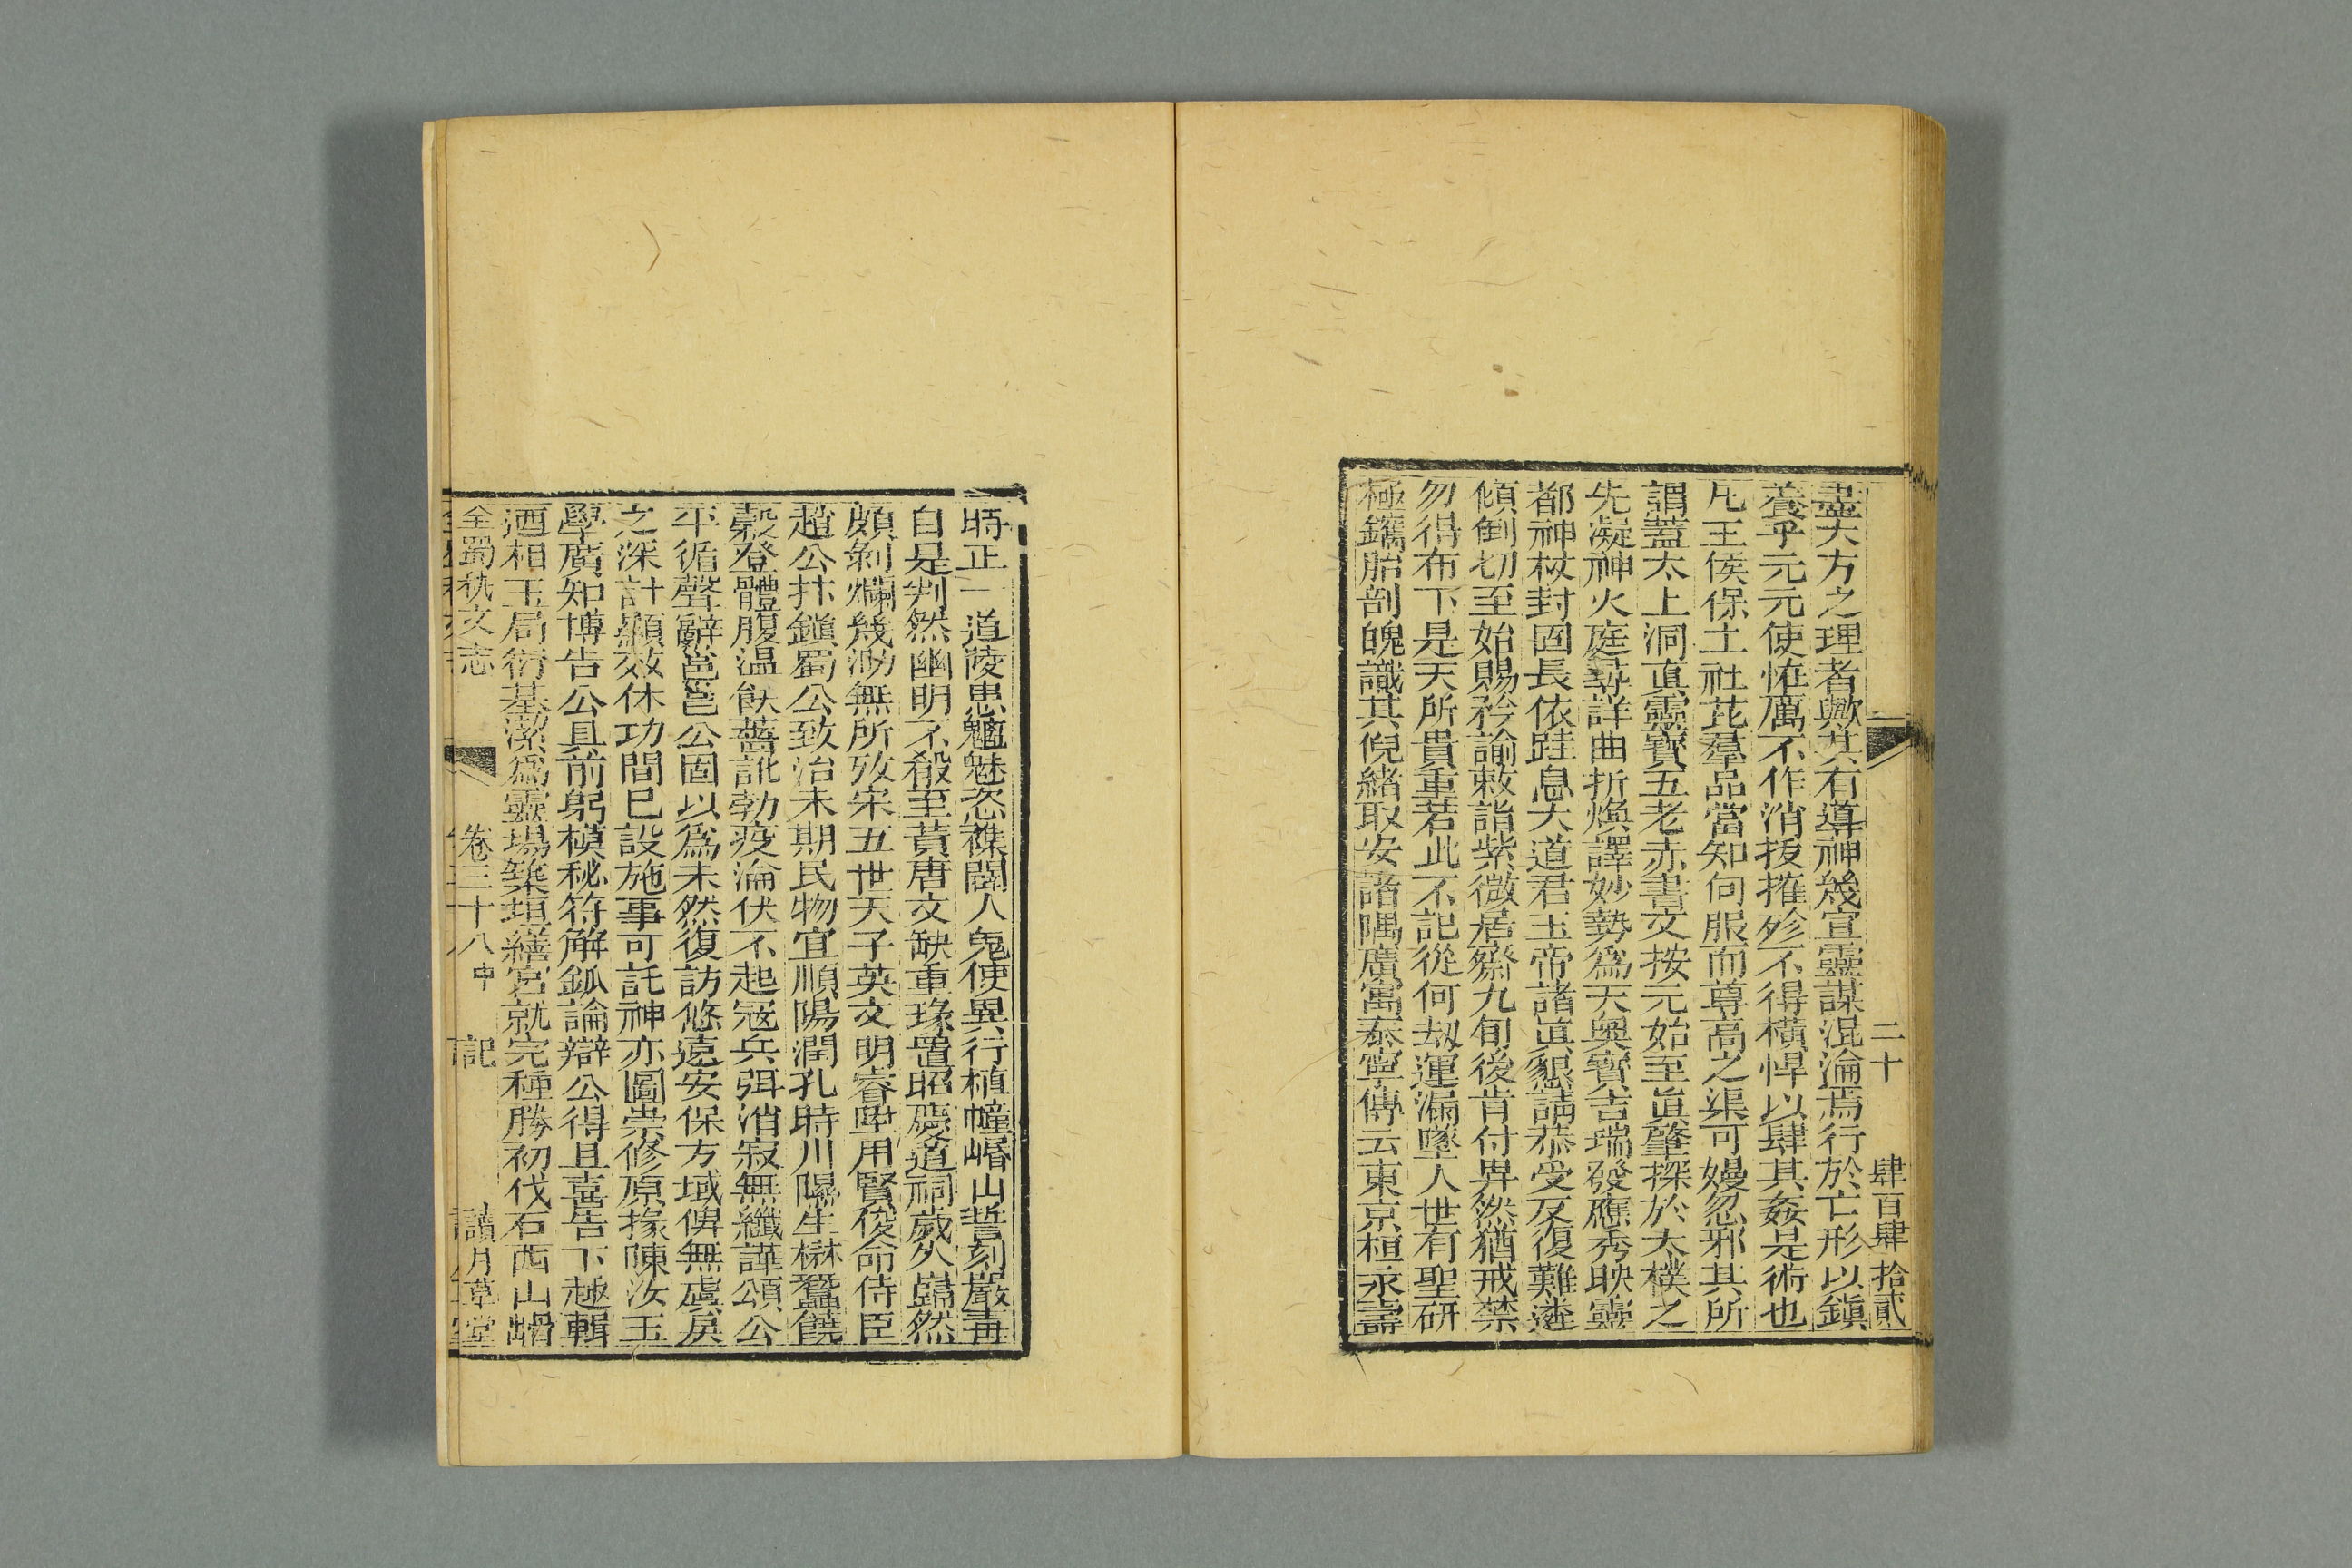 二十
肆百肆拾貳
盡大方之理者歟其有導神幾宣靈謀混淪焉行於亡形以鎭
養乎元元使怪厲不作消拔摧殄不得橫悍以肆其姦是術也
凡王侯保土社芘羣品當知何服而尊高之渠可嫚忽邪其所
謂蓋太上洞眞靈寶五老赤書文按元始至眞肇探於太樸之
先凝神火庭尋詳曲折煥譯妙勢爲天奧寶吉瑞發應秀映靈
都神杖封固長依跬息大道君玉帝諸眞懇請恭受反復難遴
傾倒切至始賜矜諭敕詣紫微居齋九旬後肯付畀然猶戒禁
勿得布下是天所貴重若此不記從何刼運漏墜人世有聖研
極鑴胎剖皅識其倪緒取安諸隅廣寓泰寧傳云東京桓永壽
時正一道陵患魑魅恣襍闤人鬼使異行植幢㟭山誓刻嚴毒
自是判然幽明不殽至蒷唐文缺重瑑置昭慶道祠歲久巋然
頗剝爛幾泐無所攷宋五世天子英文明睿墍用賢俊命侍臣
趙公抃鎭蜀公致治未期民物宜順陽潤孔時川陽生楙蠶饒
穀登體腹温飫薔訛勃疫淪伏不起寇兵弭消寂無纖譁頌公
平循聲辭邕邕公固以爲未然復訪悠遠安保方域俾無虞戾
之深計顯效休功間巳設施事可託神亦圖崇修原掾陳汝玉
學廣知博告公具前躬槙秘符解鈲論辯公得且喜告下趣輯
迺相玉局衍基潔爲靈場築垣繕宮就完種勝初伐石西山㟭
全蜀秇文志
卷三十八中
記
讀月草堂